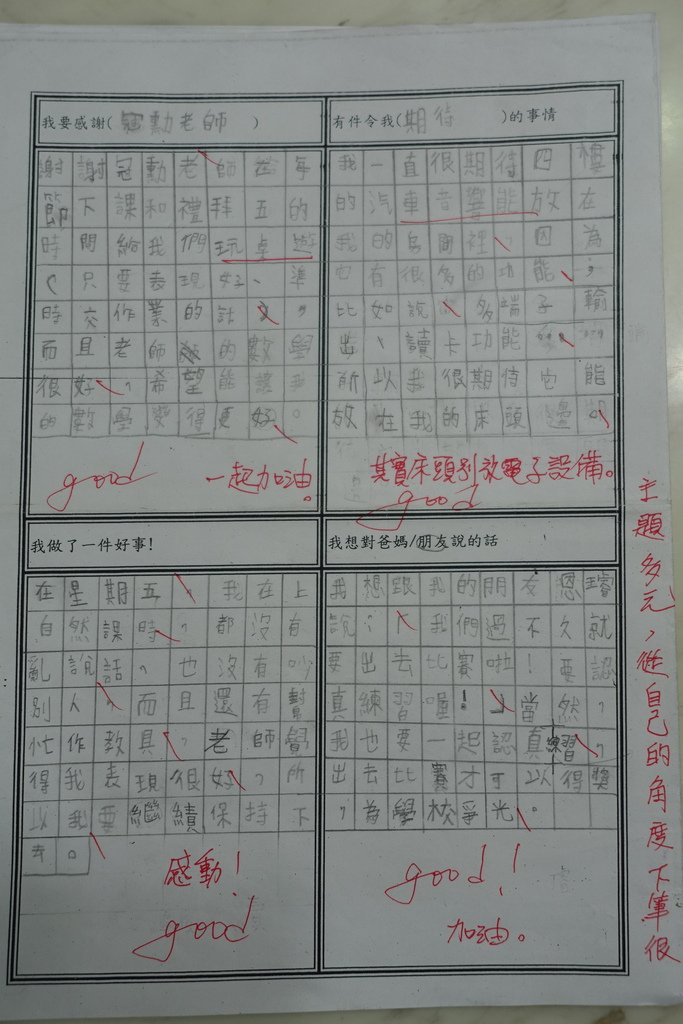 我要感謝(冠勳老師)
謝謝冠勳老師在每
節下課和禮拜五的
時間給我們玩桌遊
(只要表現好、準
時交作業的話),
而且老師教的數學
很好,希望能讓我
的數學變得更好。
good 一起加油。
有件令我(期待)的事情
我一直很期待四樓
的汽車音響能放在
我的房間裡,因為
它有很多的功能,
比如說:多端子輸
出、讀卡功能……
所以我很期待它能
放在我的床頭邊。
其實床頭別放電子設備。
good
我做了一件好事!
在星期五,我在上
自然課時,都沒有
亂說話,也沒有吵
別人,而且還有幫
忙作教具,老師覺
得我表現很好,所
以我要繼續保持下
去。
感動!
good
我想對爸媽/朋友說的話
我想跟我的朋友恩璿
說:「我們過不久就
要出去比賽啦!要認
真練習喔!」當然,
我也要一起認真練習,
出去比賽才可以得獎
,為學校爭光。
good!
加油。
主題多元,從自己的角度下筆很